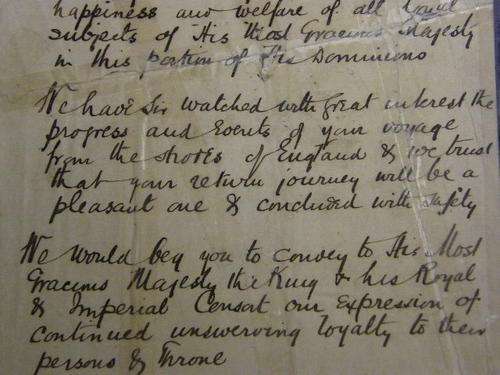 happiness and welfare of all loyal
subjects of His Most Gracious Majesty
in this portion of His Dominions
We have Sir watched with great interest the
progress and Events of your voyage
from the shores of England & we trust
that your return journey will be a
pleasant one & concluded with safety
We would beg you to convey to His Most
Gracious Majesty the King & his Royal
& Imperial Consort our Expression of
continued unswerving loyalty to their
persons & Throne